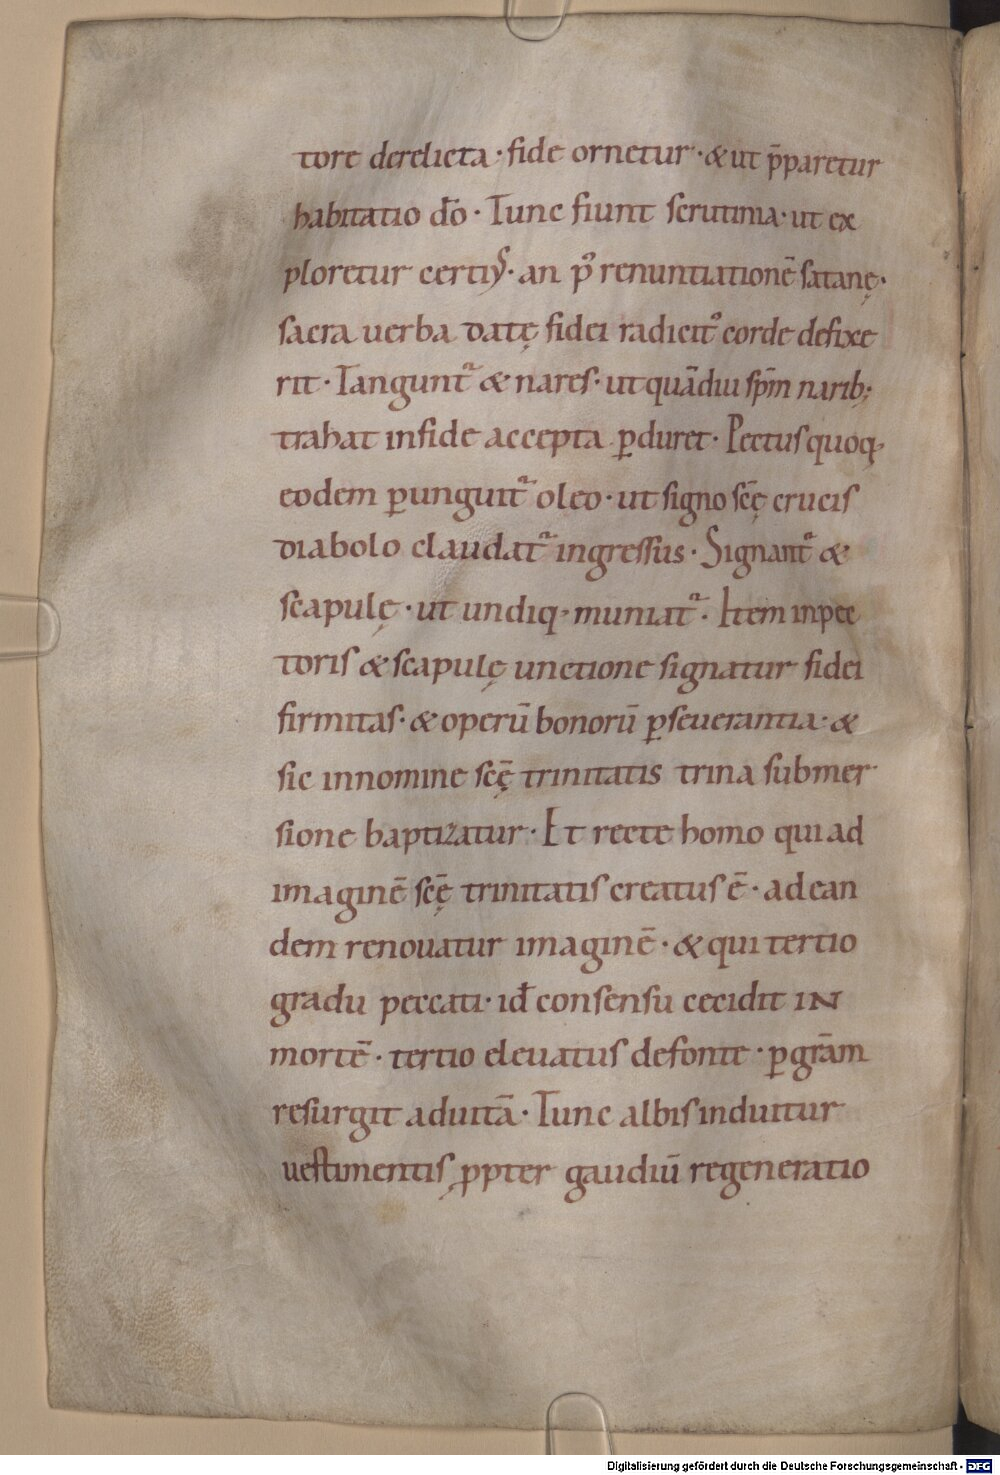 tore derelicta · fide ornetur · & ut p̄paretur
habitatio do̅ · Tunc fiunt scrutinia · ut ex
ploretur certiꝰ · an pͦ renuntiationē satanę ·
sacra uerba datę fidei radicitͦ corde defixe
rit · Tangunt᷑ & nares · ut quādiu sp̄m narib;
trahat in fide accepta ꝑduret · Pectus quoq;
eodem ꝑunguit᷑ oleo · ut signo scę̄ crucis
diabolo claudat᷑ ingressus · Signant᷑ &
scapulę · ut undiq; muniat᷑ · Item in pec
toris & scapulę unctione signatur fidei
firmitas · & operū bonorū ꝑseuerantia · &
sic in nomine scę̄ trinitatis trina submer
sione baptizatur · Et recte homo qui ad
imaginē scę̄ trinitatis creatus ē · ad ean
dem renouatur imaginē · & qui tertio
gradu peccati · id̄ consensu cecidit IN
mortē · tertio eleuatus de fonte · ꝑ gr̄am
resurgit ad uitā · Tunc albis induitur
uestimentis ꝓpter gaudiū regeneratio
Digitalisierung gefördert durch die Deutsche Forschungsgemeinschaft - DFG